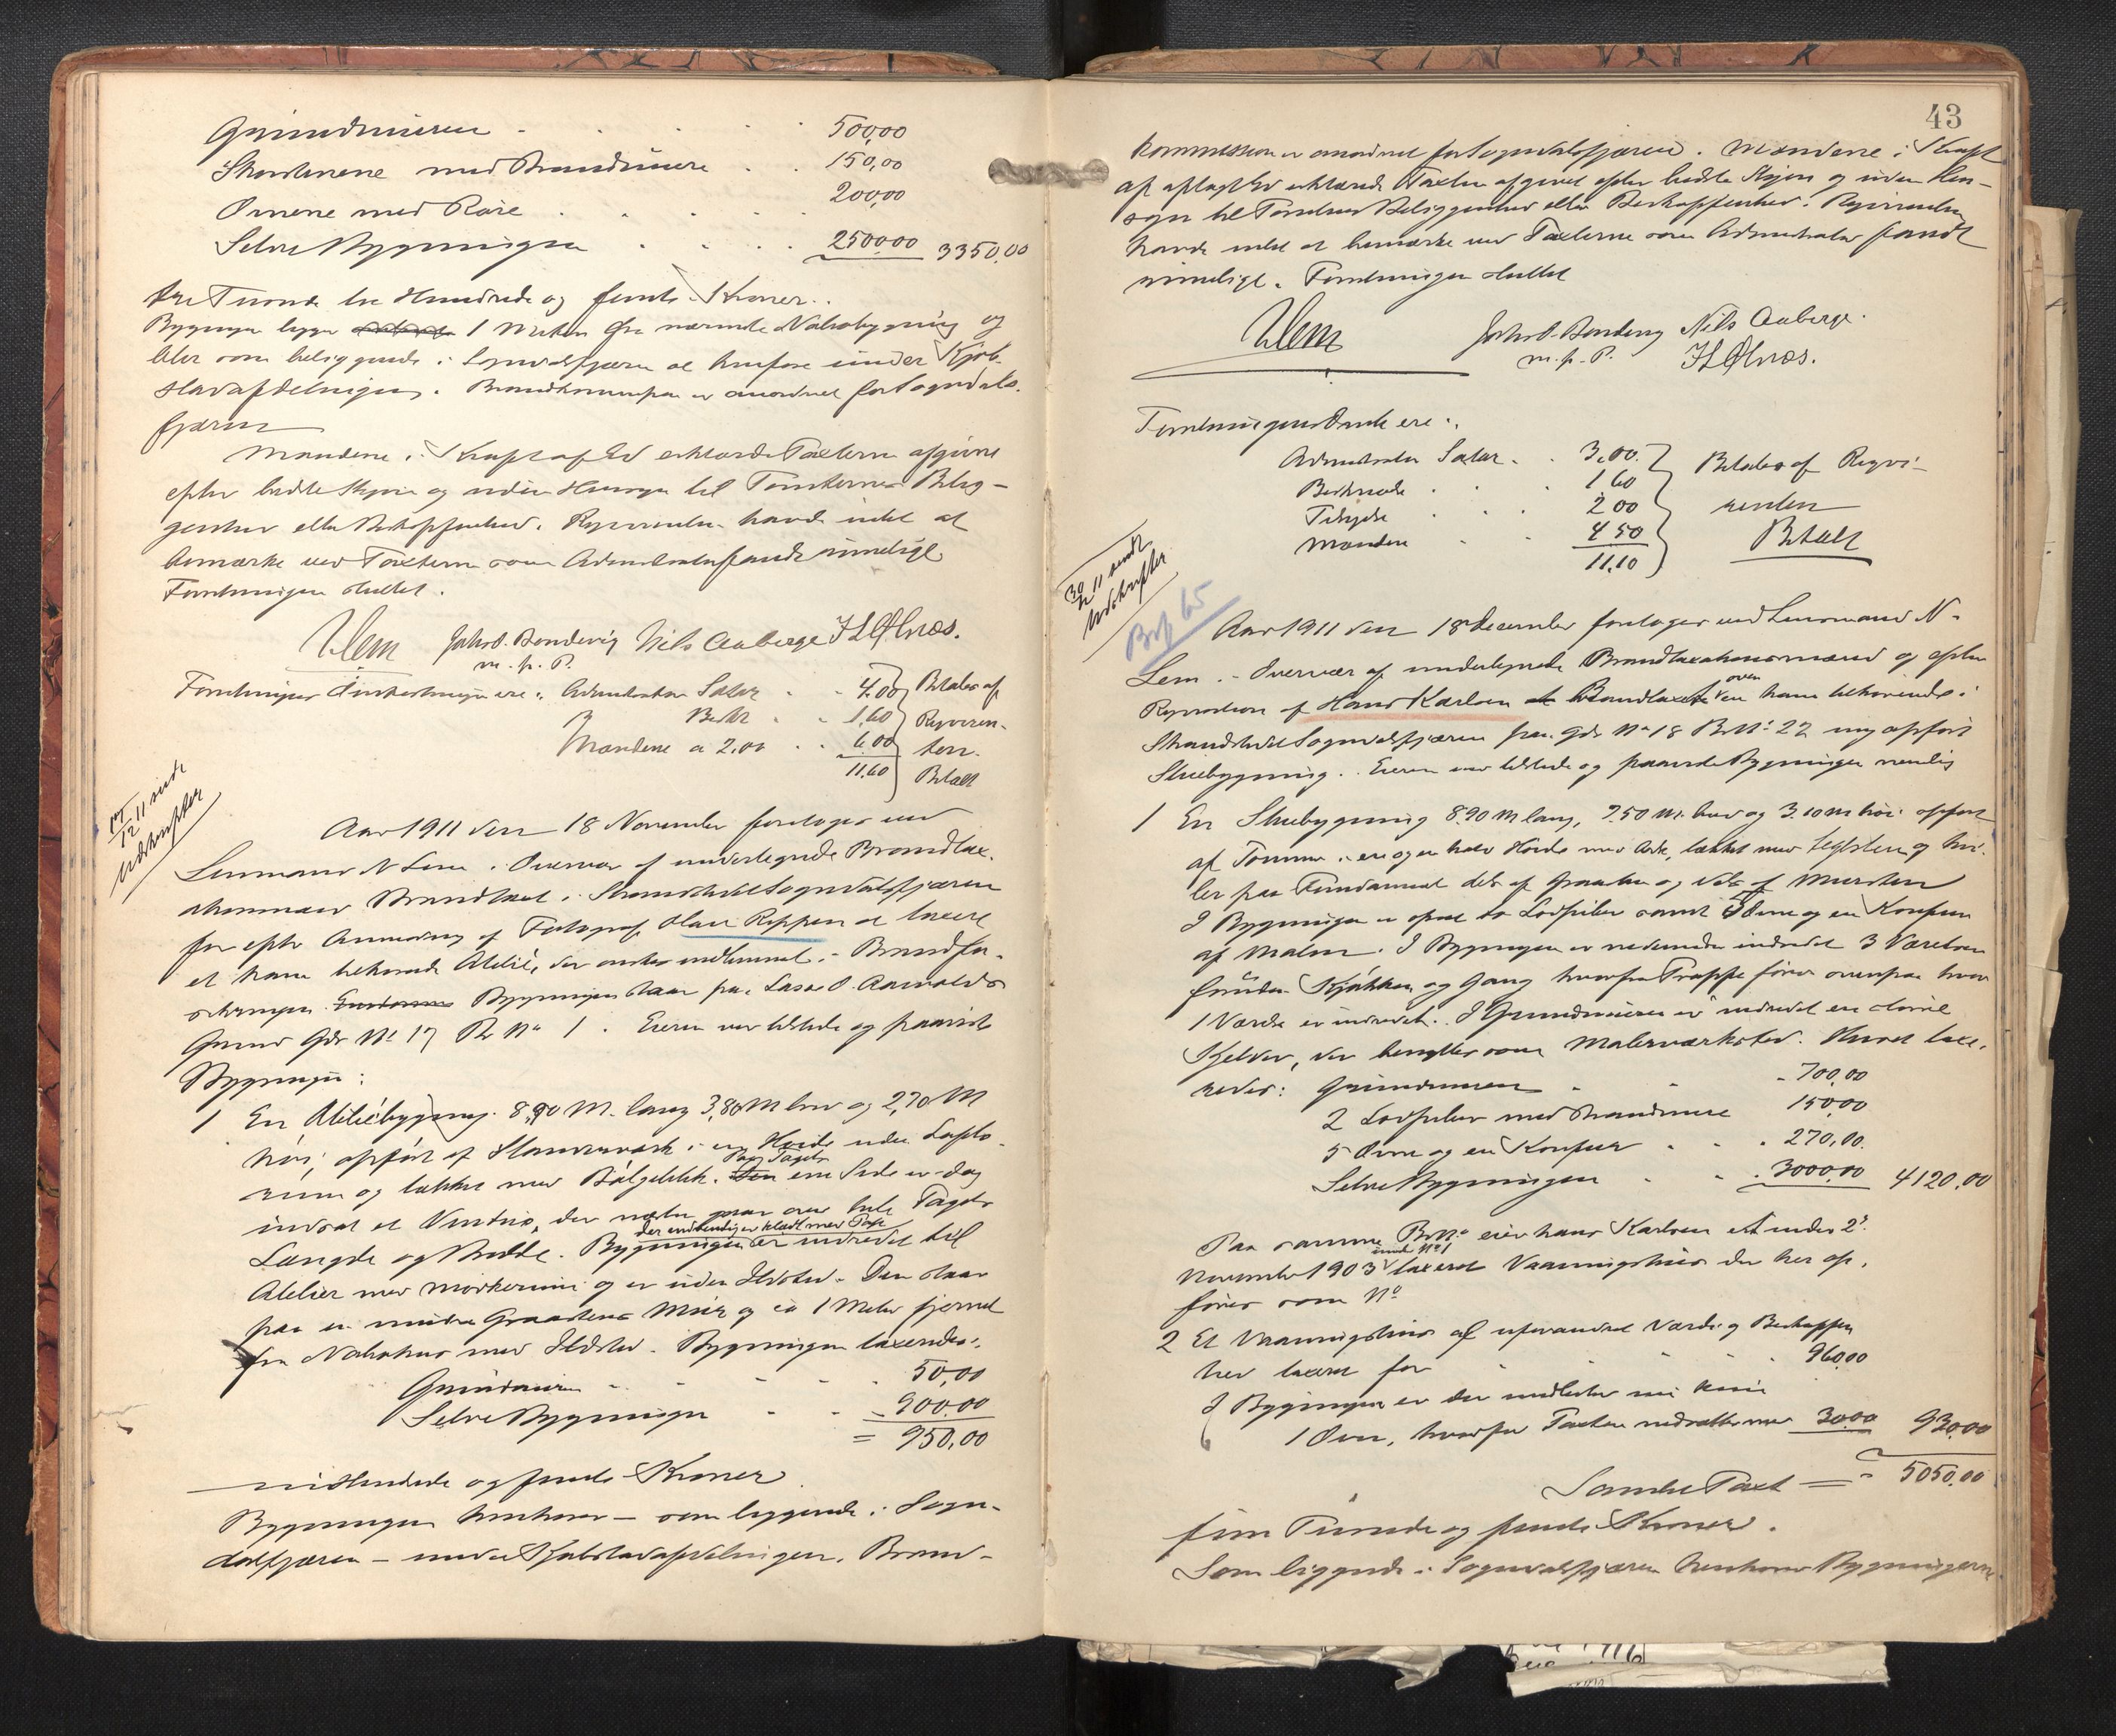 Grundmuren 500,00
Skorstenene med Brandmure 150,00
Ovnene med Rør 200,00
Selve Bygningen 2500,00 3350.00
tre Tusinde tre Hundrede og femti Kroner.
Bygningen ligger 1 Meter fra nærmeste Nabobygning og
blir som beliggende i Sogndalsfjæren at henføre under Kjøb-
stadafdelingen. Brandkommission er anordnet for Sogndals-
fjæren
Mændene i Kraft af Ed erklærede Taxterne afgivne
efter bedste Skjøn og uden Hensyn til Tomternes Belig-
genhed eller Beskaffenhed. Rekvirenten havde intet at
bemærke ved Taxterne som Administrator fandt rimelige
Forretningen sluttet.
N Lem Jakob O. Bondevig Nils Aaberge I L Ølnæs.
m. p. P.
Forretningens Omkostninger ere: Administrator Salær 4.00 Betales af
Beskr 1,60 Rekviren-
Mændene a 2.00 6.00 ten.
11,60 Betalt
17/12 11 sendt
Udskrifter
Aar 1911 den 18 November foretoges ved
Lensmand N Lem i Overvær af undertegnede Brandtax-
ationsmænd Brandtaxt i Strandstedet Sogndalsfjæren
for efter Anmodning af Fotograf Olav Reppen at taxere
et ham tilhørende Atelier, der ønskes indlemmet i Brandfor-
sikringen. Bygningen staar paa Lasse O. Aarvolds
Grund Gds No 17 Br No 1. Eieren var tilstede og paaviste
Bygningen:
1 En Atelierbygning 8,90 M. lang 3,80 M bred og 2,70 M
høi, opført af Stavværk i en Høide uden Lofts-
rum og tækket med Bølgeblik. Paa Tagets ene Side er dog
indsat et Vindu, der næsten gaar over hele Tagets
der indvendig er klædt med Pap
Længde og Bredde. Bygningen er indredet til
Atelier med Mørkerum og er uden Ildsted. Den staar
paa en mindre Graastens Mur og ca 1 Meter fjernet
fra Nabohus med Ildsted. Bygningen taxeredes:
Grundmuren 50,00
Selve Bygningen 900,00
= 950,00
ni Hundrede og femti Kroner
Bygningen henhører – som liggende i Sogn-
dalsfjæren – under Kjøbstadafdelingen. Brand-
43
kommission er anordnet for Sogndalsfjæren. Mændene i Kraft
af aflagt Ed erklærede Taxten afgivet efter bedste Skjøn og uden Hen-
syn til Tomternes Beliggenhed eller Beskaffenhed. Rekvirenten
havde intet at bemærke ved Taxterne som Administrator fandt
rimelige. Forretningen sluttet
N Lem Jakob O. Bondevig Nils Aaberge.
m. p. P. I L Ølnæs.
Forretningens Omk ere:
Administrator Salær 3.00 Betales af Rekvi-
Beskrivelse 1 60 renten
2 00
Mændene 4 50 Betalt
11,10
30/12 11 sendt
Udskrifter
Aar 1911 den 18 December foretoges ved Lensmand N.
Lem i Overvær af undertegnede Brandtaxationsmænd og efter
Rekvisition af Hans Karlsen Brandtaxt over en ham tilhørende i
Strandstedet Sogndalsfjæren paa Gds No 18 Br No 22 ny opført
Stuebygning. Eieren var tilstede og paaviste Bygningen nemlig
1 En Stuebygning 8.90 M lang, 7.50 M. bred og 3.10 M høi opført
af Tømmer i en og en halv Høide med Ark, tækket med Teglsten og hvi-
ler paa Fundament dels af Graasten og dels af Mursten
I Bygningen er opsat to Lodpiber samt 5 Ovne og en Komfur
af Malm. I Bygningen er nedenunder indredet 3 Værelser
foruden Kjøkken og Gang hvorfra Trappe fører ovenpaa hvor
1 Værelse er indredet. I Grundmuren er indredet en stor
Kjelder, der benyttes som Malerværksted. Huset taxe-
redes: Grundmuren 700,00
2 Lodpiber med Brandmure 150,00
5 Ovne og en Komfur 270,00.
Selve Bygningen 3000,00 4120,00
Paa samme Br.No. eier Hans Karlsen et under 2'
November 1903 under No 1 taxeret Vaaningshus der her op-
føres som No
2 Et Vaaningshus af uforandret Værdi og Beskaffen
hed taxeret for 960,00
I Bygningen er der imidlertid nu kun
1 Ovn, hvorfor Taxten nedsættes med 30,00 930,00
Samlet Taxt = 5050,00
fem Tusinde og femti Kroner.
Som liggende i Sogndalsfjæren henhører Bygningerne